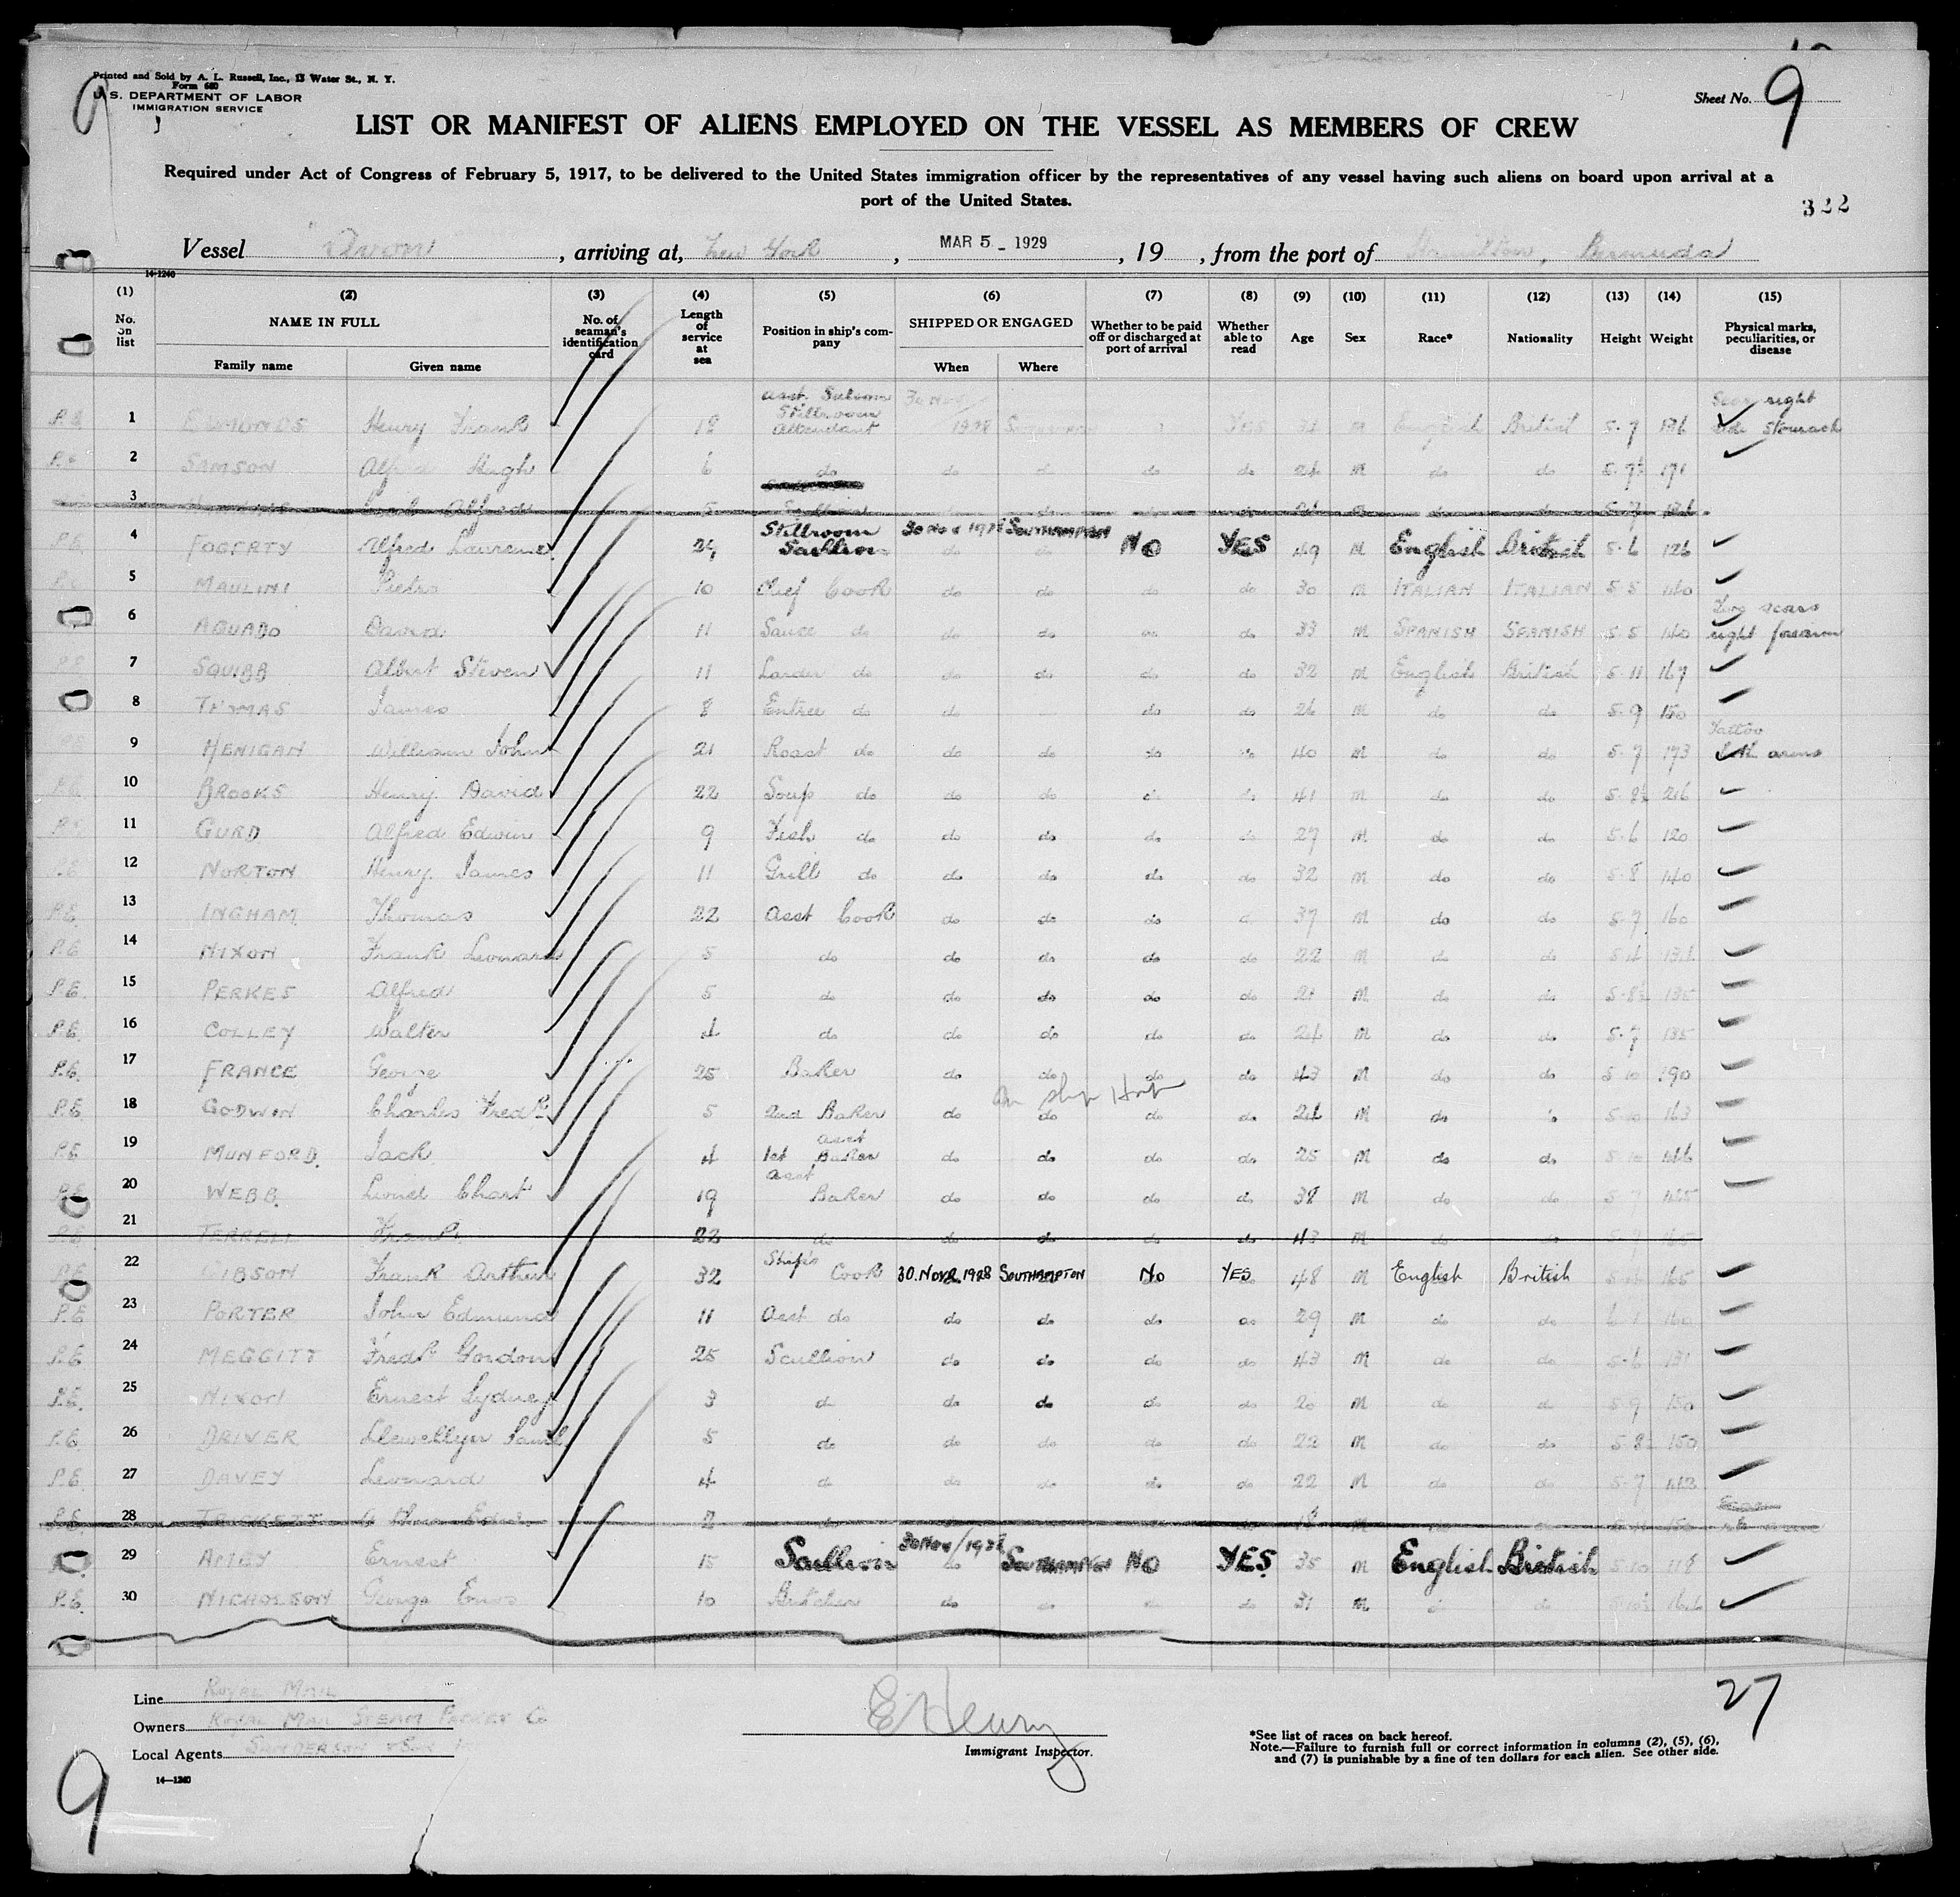 Printed and Sold by A. L. Russell, Inc., 13 Water St., N. Y.
Form 680
U. S. DEPARTMENT OF LABOR
IMMIGRATION SERVICE
9
Sheet No. 9
LIST OR MANIFEST OF ALIENS EMPLOYED ON THE VESSEL AS MEMBERS OF CREW
Required under Act of Congress of February 5, 1917, to be delivered to the United States immigration officer by the representatives of any vessel having such aliens on board upon arrival at a
port of the United States.
322
Vessel "Avon", arriving at, New York, MAR 5 - 1929, 19 , from the port of Hamilton, Bermuda
14-1240
(1) (2) (3) (4) (5) (6) (7) (8) (9) (10) (11) (12) (13) (14) (15)
No. on list NAME IN FULL No. of seaman's identification card Length of service at sea Position in ship's company SHIPPED OR ENGAGED Whether to be paid off or discharged at port of arrival Whether able to read Age Sex Race* Nationality Height Weight Physical marks, peculiarities, or disease
Family name Given name When Where
P.E. 1 EDMUNDS Henry Frank 12 Asst. Saloon Stillroom Attendant 30 Nov 1928 Southampton YES M English British 5-7 Scar right side stomach
P.E. 2 SAMSON Alfred Hugh 6 do do do do do 24 M do do 5-7½ 171
3 Alfred 5
P.E. 4 FOGERTY Alfred Lawrence 29 Stillroom Scullion 30 Nov 1928 Southampton No YES 49 M English British 5-6 126
5 MAULINI Pietro 10 Chief Cook do do do do 30 M ITALIAN ITALIAN 5 5 140
6 AGUADO David 11 Sauce do do do do do 33 M SPANISH SPANISH 5 5 140 Long scars right forearm
P.E. 7 SQUIBB Albert Steven 11 Larder do do do do do 32 M English British 5-11 167
8 THOMAS James 8 Entree do do do do 26 M do do 5-9 150
9 HENIGAN William John 21 Roast do do do do do 40 M do do 5-7 173 Tattoo both arms
P.E. 10 BROOKS Henry David 22 Soup do do do do do 41 M do do 5-8½ 216
P.E. 11 GURD Alfred Edwin 9 Fish do do do do do 27 M do do 5-6 120
P.E. 12 NORTON Henry James 11 Grill do do do do do 32 M do do 5-8 140
P.E. 13 INGHAM Thomas 22 Asst Cook do do do do 37 M do do 5-7 160
P.E. 14 NIXON Frank Leonard 5 do do do do do 22 M do do 5-4 134
P.E. 15 PERKES Alfred 5 do do do do do 21 M do do 5-8½ 135
P.E. 16 COLLEY Walter 4 do do do do do 24 M do do 5-7 135
P.E. 17 FRANCE George 25 Baker do do do do 43 M do do 5-10 190
On ship Hosp
P.E. 18 GODWIN Charles Fredk 5 2nd Baker do do do do 24 M do do 5-10 163
P.E. 19 MUNFORD. Jack 4 1st asst Baker do do do do 25 M do do 5-10 144
P.E. 20 WEBB. Lionel Chart 19 asst Baker do do do do 38 M do do 5 7
P.E. 21 TERRELL Frank 22 do do do do do 43 M do do
P.E. 22 GIBSON Frank Arthur 32 Ship's Cook 30. NOVR. 1928 SOUTHAMPTON No YES 48 M English British 165
P.E. 23 PORTER John Edmund 11 Asst do do do do do 29 M do do 6 1 160
P.E. 24 MEGGITT Fredk Gordon 25 Scullion do do do do 43 M do do 5-6 131
P.E. 25 NIXON Ernest Sydney 3 do do do do do 20 M do do 5 9 150
P.E. 26 DRIVER Llewellyn 5 do do do do do 22 M do do 5 8½ 150
P.E. 27 DAVEY Leonard 4 do do do do do 22 M do do 5-7 142
P.E. 28 TRICKETT 2 do
29 AMEY Ernest 15 Scullion 30 Nov/1928 Southampton NO YES 35 M English British 5-10 118
P.E. 30 NICHOLSON George Enos 10 Butcher do do do do 31 M do do
Line Royal Mail
Owners Royal Mail Steam Packet Co
Local Agents Sanderson & Son Inc
14-1240
E Henry
Immigrant Inspector.
27
*See list of races on back hereof.
Note.—Failure to furnish full or correct information in columns (2), (5), (6),
and (7) is punishable by a fine of ten dollars for each alien. See other side.
9